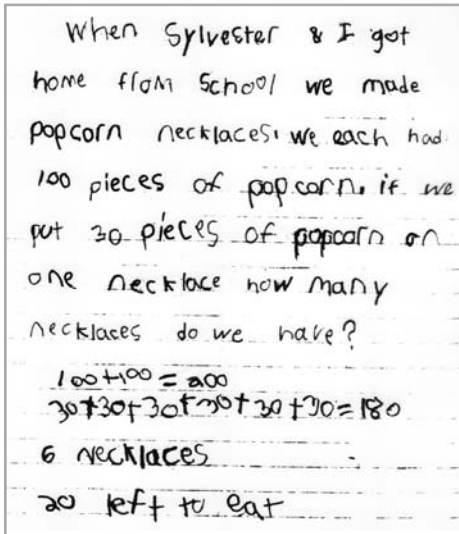 When Sylvester & I got
home from School we made
popcorn necklaces. we each had
100 pieces of popcorn. if we
put 30 pieces of popcorn on
one necklace how many
necklaces do we have?
100+100=200
30+30+30+30+30+30=180
6 necklaces
20 left to eat